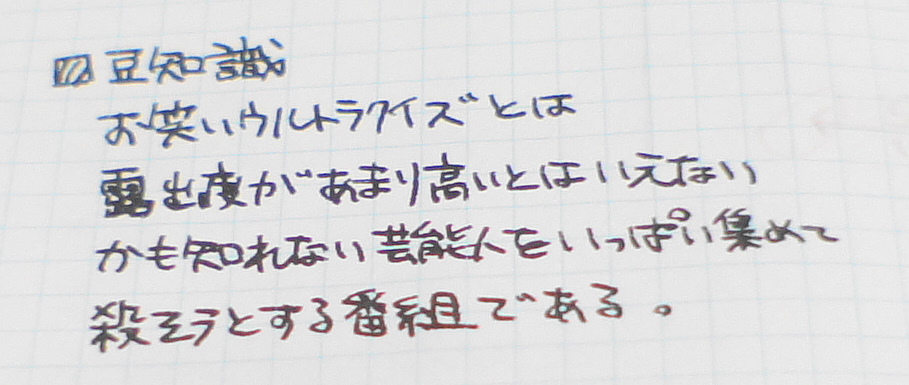 ▨豆知識
お笑いウルトラクイズとは
露出度があまり高いとはいえない
かも知れない芸能人をいっぱい集めて
殺そうとする番組である。